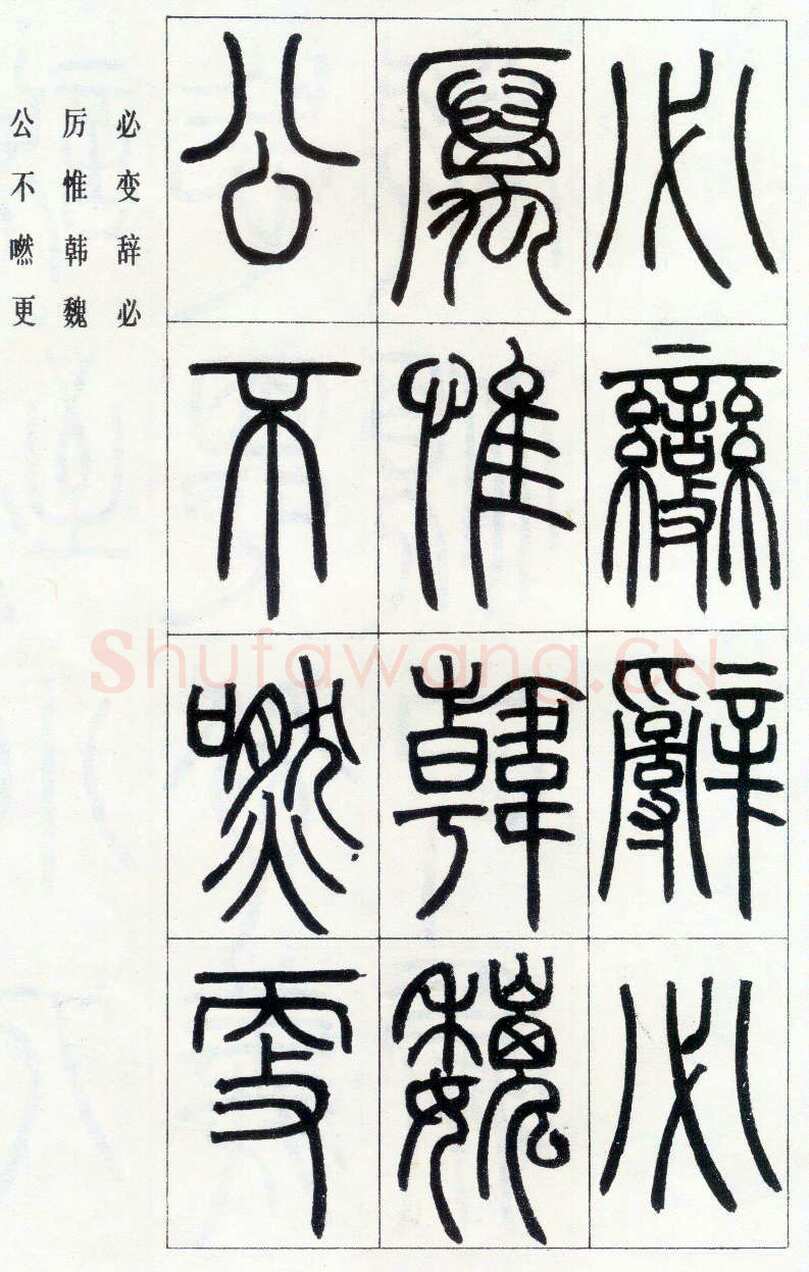 必變辭必
厲惟韓魏
公不嘫更
必变辞必
厉惟韩魏
公不嘫更
Shufawang.CN